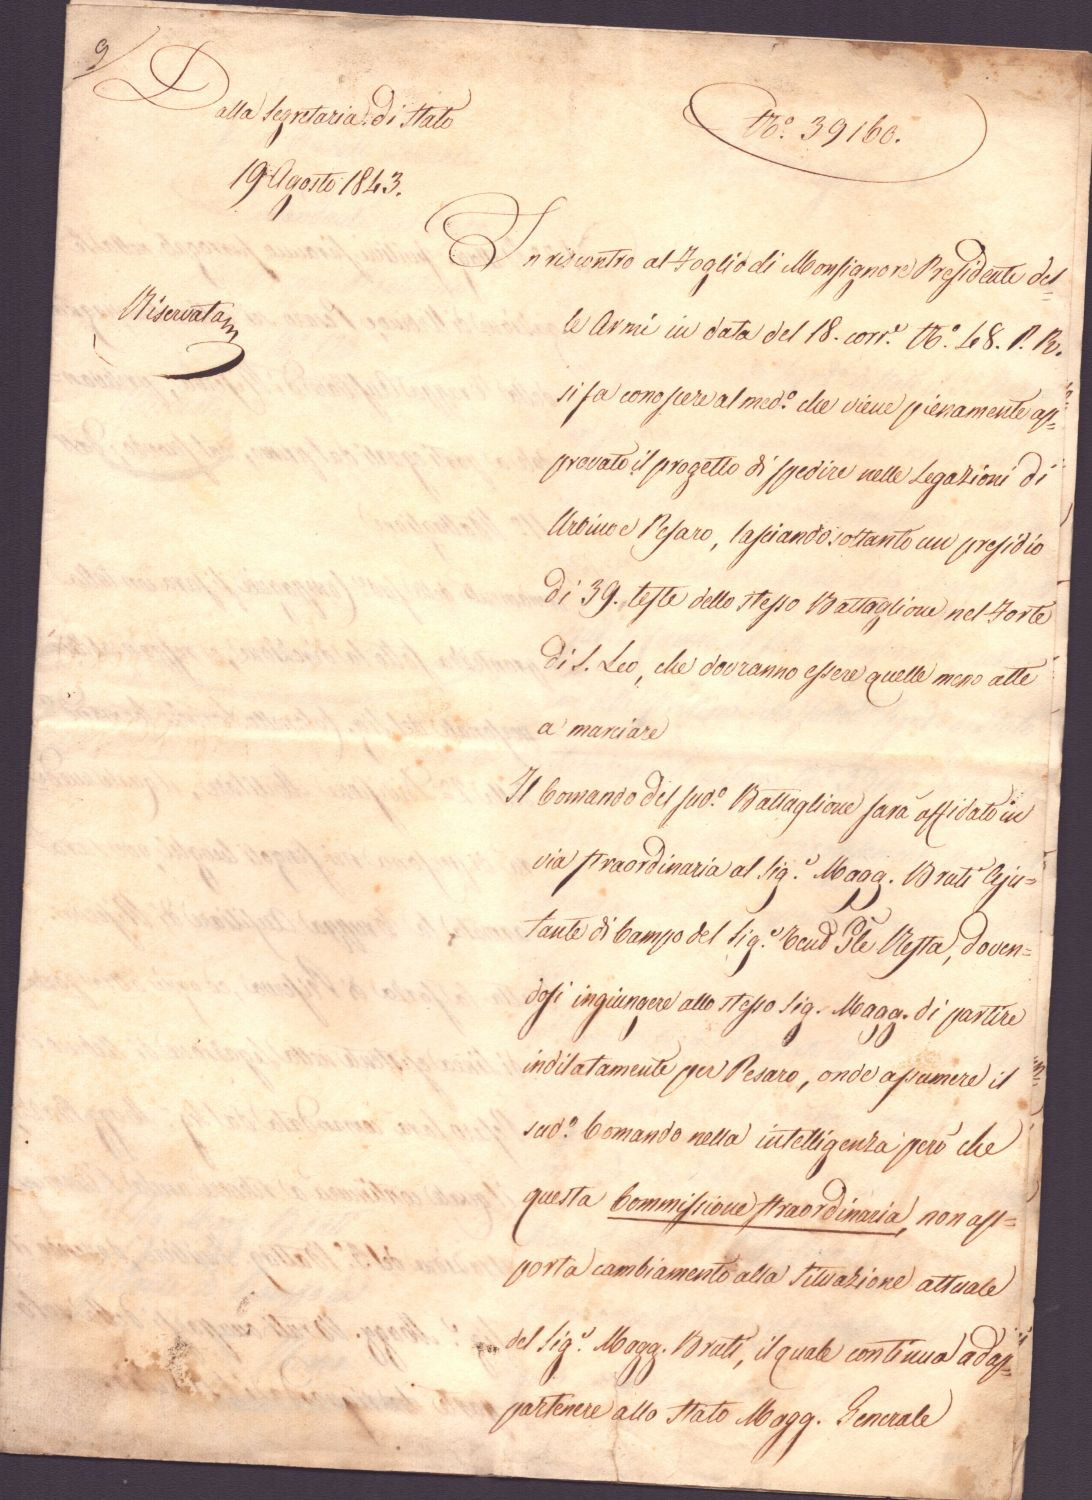 9
Dalla Segretaria di Stato
19 Agosto 1843.
N.º 39160.
Riservata
In riscontro al Foglio di Monsignore Presidente del=
le Armi in data del 18. corr.e N.º 48. P. R.
si fa conoscere al med.º che viene pienamente ap=
provato il progetto di spedire nelle Legazioni di
Urbino e Pesaro, lasciando soltanto un presidio
di 39. teste dello stesso Battaglione nel Forte
di S. Leo, che dovranno essere quelle meno atte
a marciare
Il Comando del sud.º Battaglione sarà affidato in
via straordinaria al Sig.e Magg. Brati Aju=
tante di Campo del Sig.e Gãle Resta, doven=
dosi ingiungere allo stesso Sig. Magg. di partire
indilatamente per Pesaro, onde assumere il
sud.º Comando nella intelligenza però che
questa Commissione straordinaria, non ap=
porta cambiamento alla situazione attuale
del Sig.e Magg. Brati, il quale continua ad ap=
partenere allo Stato Magg. Generale